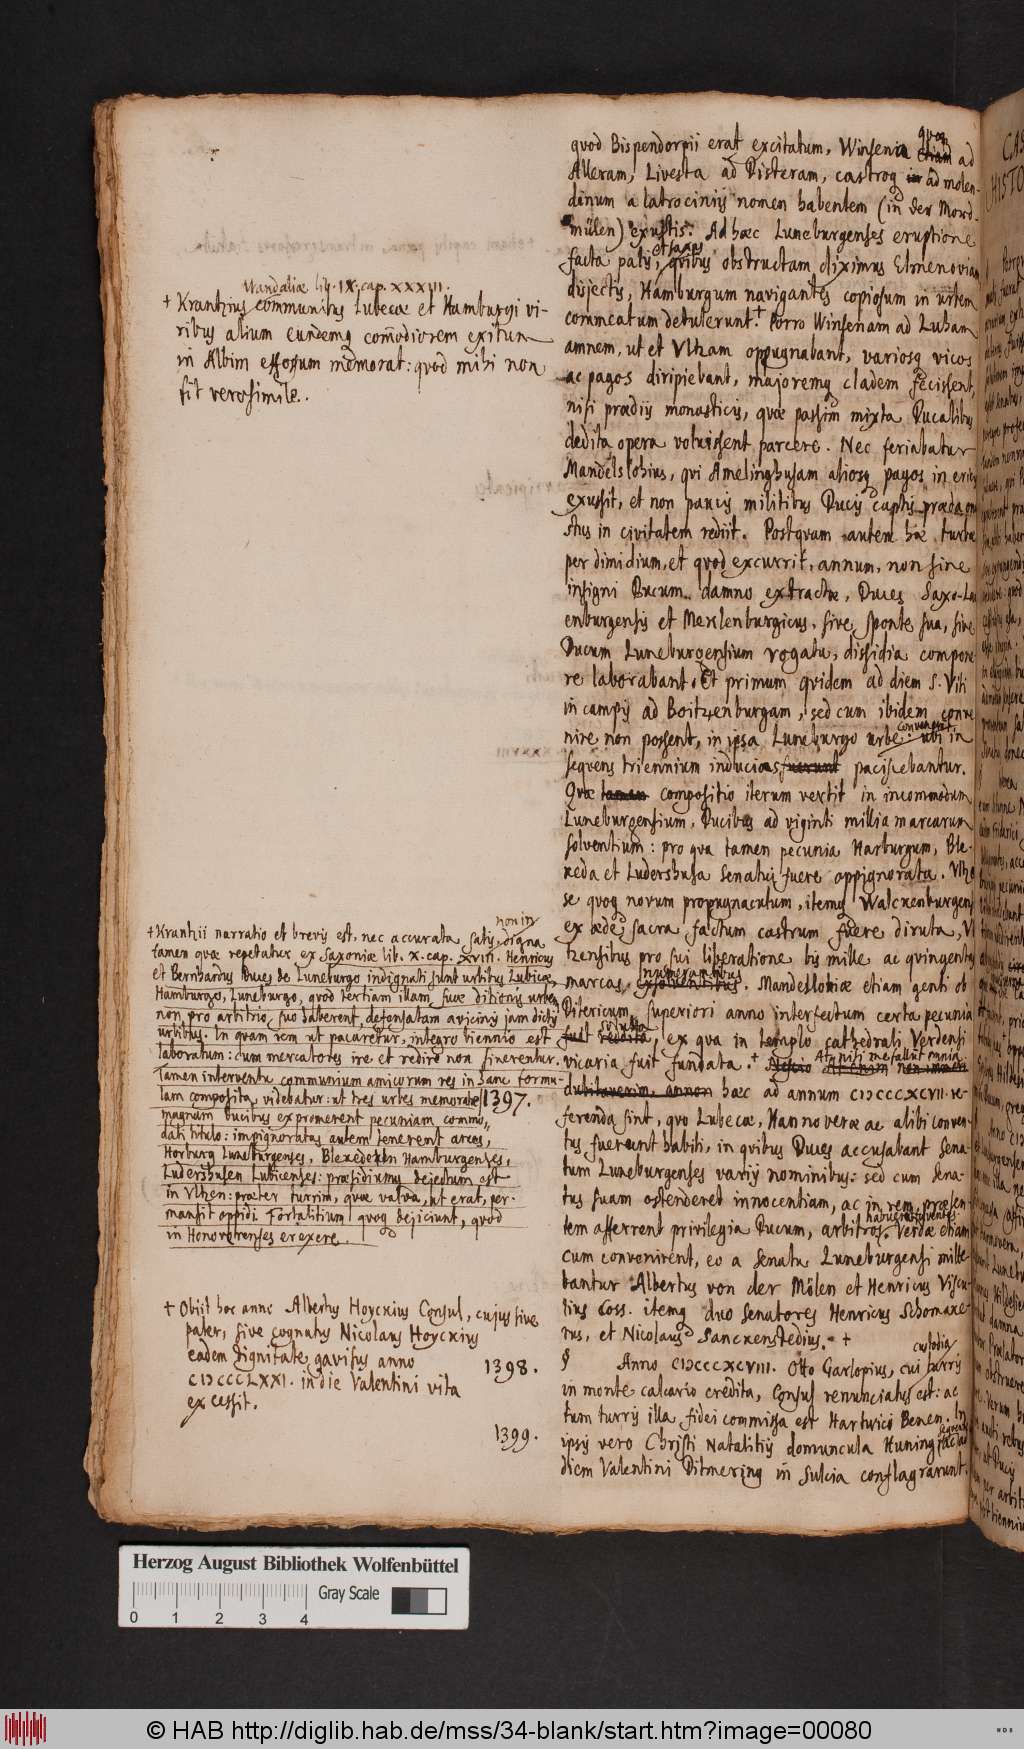 quod Bispendorpii erat excitatum, Winsenia quoq etiam ad
Alleram, Livesta ad Disteram, castroq in ad molen-
dinum a latrociniis nomen habentem (in der Mord-
mülen) exustis. Ad hæc Luneburgenses eruptione
facta palis, et saxis quibus obstructam diximus Elmenoviam
disjectis, Hamburgum navigantes copiosum in urbem
commeatum detulerunt.† Porro Winsenam ad Luham
amnem, ut et Vlham oppugnabant, variosq vicos
ac pagos diripiebant, majoremq cladem fecissent,
nisi prædiis monasticis, quæ passim mixta Ducalibus
dedita opera voluissent parcere. Nec feriabatur
Mandelslohius, qui Amelinghusam aliosq pagos in
exussit, et non paucis militibus Ducis captis præda onu
stus in civitatem rediit. Postquam autem hæ turbæ
per dimidium, et quod excurrit, annum, non sine
insigni Ducum damno extractæ, Duces Saxo-La
enburgensis et Meklenburgicus, sive sponte sua, sive
Ducum Luneburgensium rogatu, dissidia compone
re laborabant. Et primum quidem ad diem S. Viti
in campis ad Boitzenburgam, sed cum ibidem conve
nire non possent, in ipsa Luneburgo urbe convenerat. ubi in
sequens triennium inducias fuerunt paciscebantur.
Quæ tamen compositio iterum vertit in incommodum
Luneburgensium, Ducibus ad viginti millia marcarum
solventium: pro qua tamen pecunia Harburgum, Ble-
keda et Ludershusa Senatui fuere oppignorata.
se quoq novum propugnaculum, itemq Walckenburgens
ex ædes sacra factum castrum fuere diruta,
tzensibus pro sui liberatione bis mille ac quingentas
marcas numerantibus exsolventibus. Mandesloniæ etiam genti ob
Ditericum, superiori anno interfectum certa pecunia
fuit soluta reddita, ex qua in templo cathedrali Verdensi
vicaria fuit fundata.† Nescio At nisi me fallunt omnia
dubitaverim, annon hæc ad annum CIƆCCCXCVII. re-
ferenda sint, quo Lubecæ, Hannoveræ ac alibi conven-
tus fuerunt habiti, in quibus Duces accusabant Sena-
tum Luneburgenses variis nominibus: sed cum Sena-
tus suam ostenderet innocentiam, ac in rem præsen-
tem afferrent privilegia Ducum, arbitros habuere faventes. Verdæ etiam
cum convenirent, eo a Senatu Luneburgensi mitte-
bantur Albertus von der Mölen et Henricus Viscu-
lius Coss. itemq duo senatores Henricus Schomake-
rus, et Nicolaus Sanckenstedius. †
§ Anno CIƆCCCXCVIII. Otto Garlopius, cui turris custodia
in monte calcario credita, Consul renunciatus est: ac
tum turris illa fidei commissa est Hartwico Benen. In
ipsis vero Christi Natalitiis domuncula Huningi, sequenti ac
diem Valentini Ditmering in Sulcia conflagrarunt.
Wandaliæ lib. IX. cap. XXXIII.
† Krantzius communibus Lubecæ et Hamburgi vi-
ribus alium eundemq commodiorem exitum
in Albim effossum memorat: quod mihi non
fit verosimile.
† Krantzii narratio et brevis est, nec accurata satis, non in digna
tamen quæ repetatur ex Saxoniæ lib. X. cap. XVIII. Henricus
et Bernhardus Duces de Luneburgo indignati sunt urbibus Lubicæ,
Hamburgo, Luneburgo, quod tertiam illam, suæ ditionis urbem
non pro arbitrio suo haberent, defensatam a vicinis jam dictis
urbibus. In quam rem ut pacaretur, integro biennio est
laboratum: cum mercatores ire et redire non sinerentur.
Tamen interventu communium amicorum res in hanc formu-
lam composita videbatur: ut tres urbes memoratæ
magnam Ducibus expromerent pecuniam commo-
dati titulo: impignoratas autem tenerent arces,
Horburg Luneburgenses, Blexedeken Hamburgenses,
Ludershusen Lubicenses: præsidiumq dejectum est
in Vlhen: præter turrim, quæ valva, ut erat, per-
mansit oppidi. Fortalitium quoq dejiciunt, quod
in Honoverenses erexere.
1397.
† Obiit hoc anno Albertus Hoyckius Consul, cujus sive
pater, sive cognatus Nicolaus Hoyckius
eadem dignitate gavisus anno
CIƆCCCLXXI. in die Valentini vita
excessit.
1398.
1399.
Herzog August Bibliothek Wolfenbüttel
Gray Scale
0 1 2 3 4
© HAB http://diglib.hab.de/mss/34-blank/start.htm?image=00080